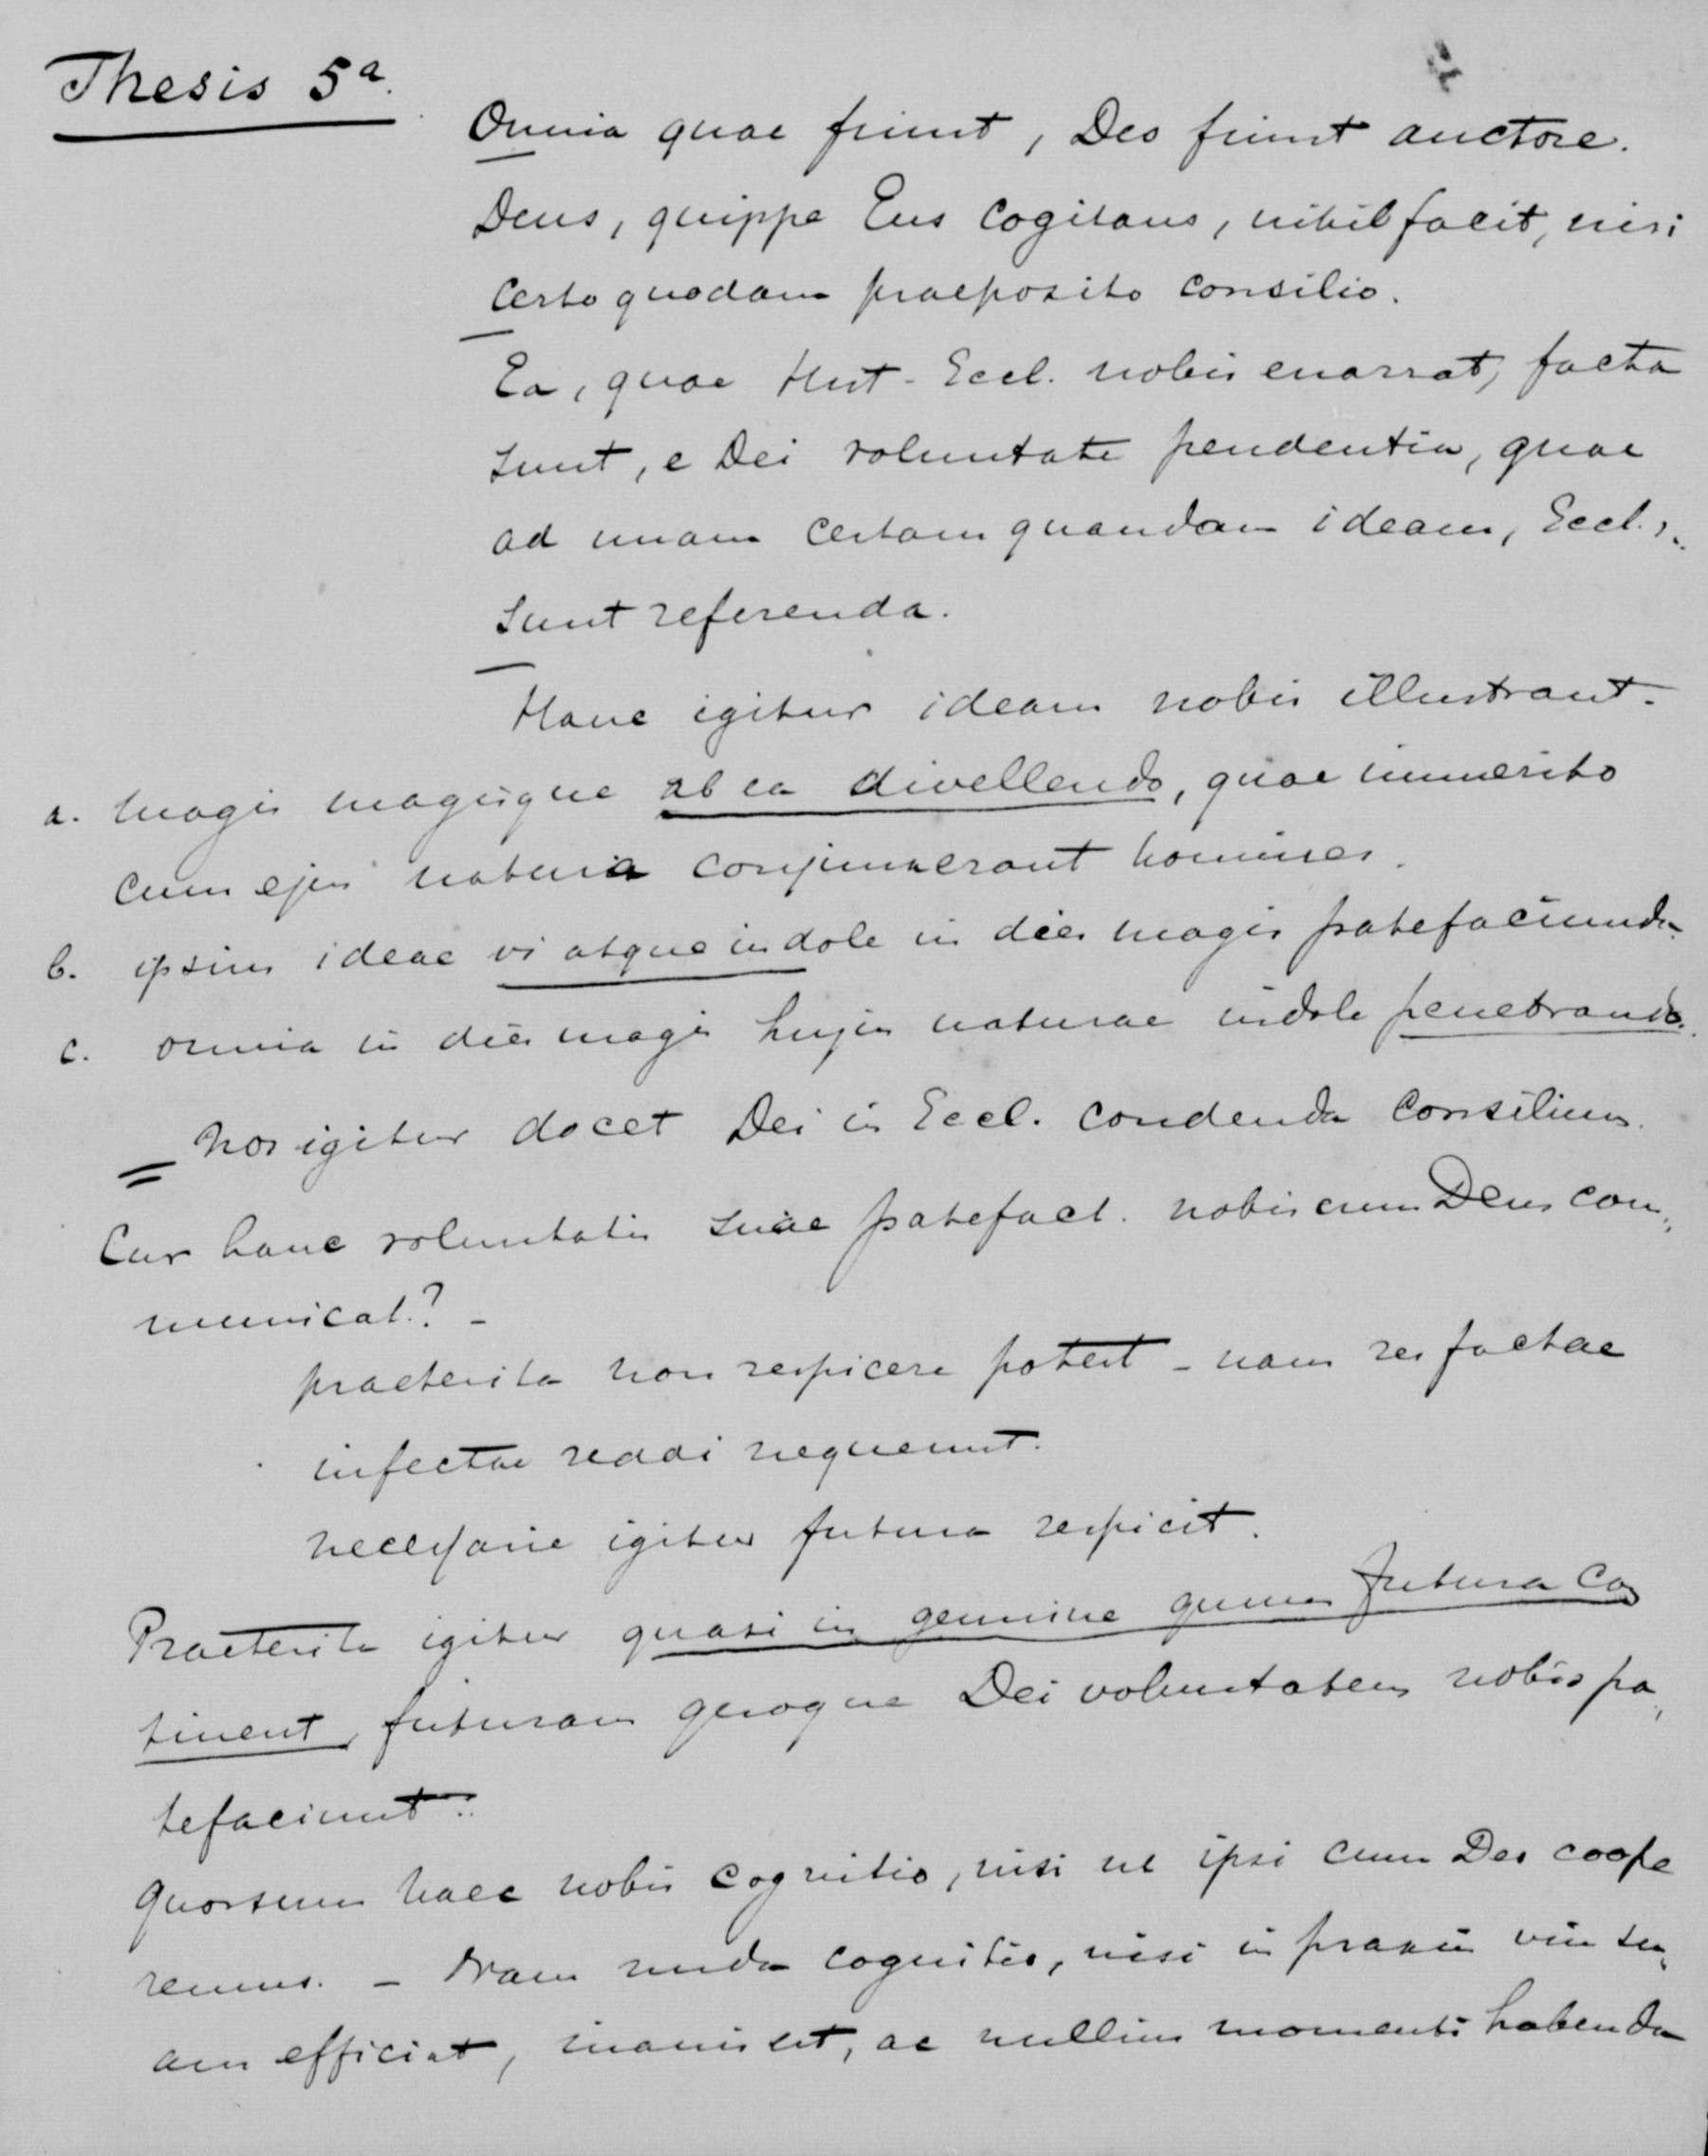 Thesis 5a.
Omnia quae fiunt, Deo fiunt auctore.
Deus, quippe Ens Cogitans, nihil facit, nisi
Certo quodam praeposito Consilio.
Ea, quae Hist. Eccl. nobis enarrat, facta
sunt, e Dei voluntate pendentia, quae
ad unam certam quandam ideam, Eccl.,
sunt referenda.
Hanc igitur ideam nobis illustrant.
a. magis magisque ab ea divellendo, quae immerito
cum ejus natura conjunxerant homines.
b. ipsius ideae vi atque indole in dies magis patefaciunda
c. omnia in dies magis hujus naturae indole penetrando.
= nos igitur docet Dei in Eccl. condenda Consilium.
Cur hanc voluntatis suae patefact. nobiscum Deus com„
municat.? -
praeterita non respicere potest - nam res factae
infectae reddi nequeunt.
necessarie igitur futura respicit.
Praeterita igitur quasi in germine futura con
tinent, futuram quoque Dei voluntatem nobis pa„
tefaciunt.
Quorsum haec nobis cognitio, nisi ut ipsi cum Deo coope
remur. - Nam nuda cognitio, nisi in praxin vim su„
am efficiat, inanis est, ac nullius momenti habenda